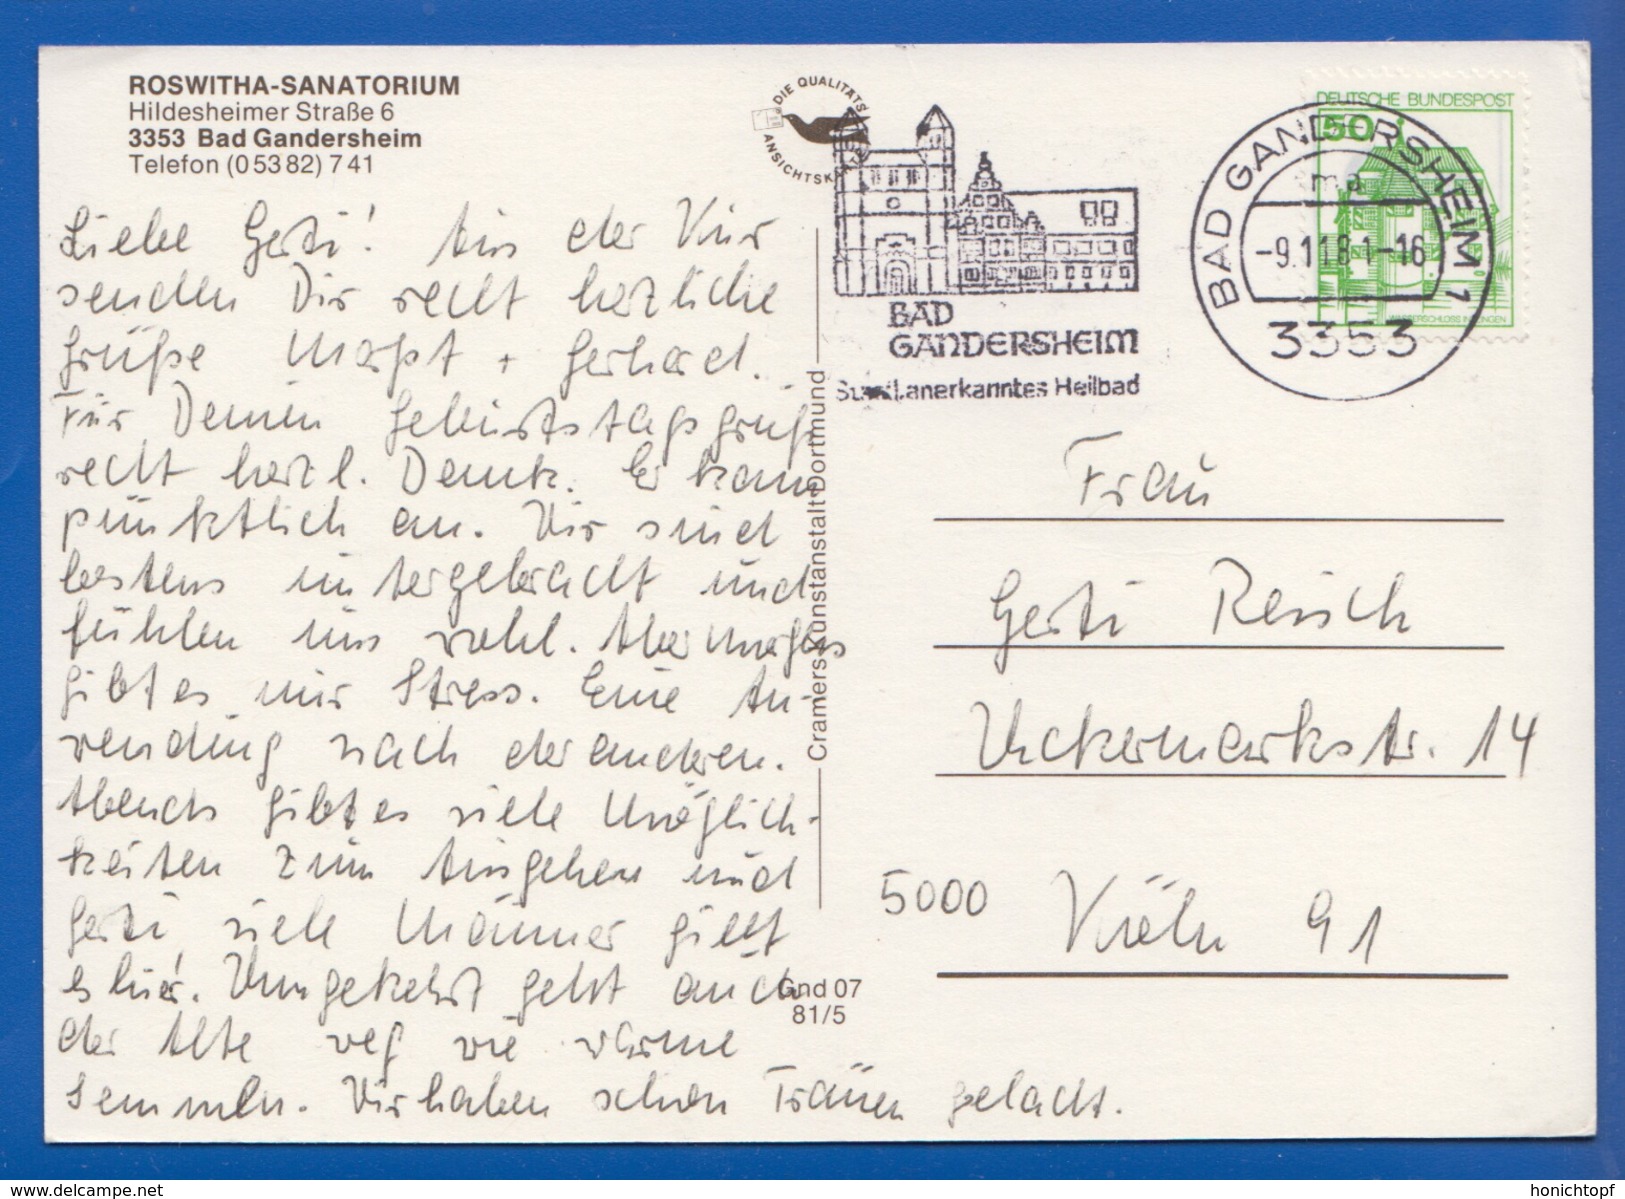 ROSWITHA-SANATORIUM
Hildesheimer Straße 6
3353 Bad Gandersheim
Telefon (0 53 82) 7 41
DIE QUALITÄTS
ANSICHTSKARTE
BAD
GANDERSHEIM
Staatl. anerkanntes Heilbad
DEUTSCHE BUNDESPOST
50
WASSERSCHLOSS INZLINGEN
BAD GANDERSHEIM 1
-9.11.81-16
3353
Liebe Gerti! Aus der Kur
senden Dir recht herzliche
Grüße + Gerhard.
Für Deinen Geburtstagsgruß
recht herzl. Dank. Er kam
pünktlich an. Wir sind
bestens untergebracht und
fühlen uns wohl. Aber morgens
gibt es nur Stress. Eine An-
wendung nach der anderen.
Abends gibt es viele Möglich-
keiten zum Ausgehen und
Gerti, viele Männer gibt
es hier. Umgekehrt geht auch
der Alte weg wie warme
Semmeln. Wir haben schon Tränen gelacht.
Cramers Kunstanstalt Dortmund
Gnd 07
81/5
Frau
Gerti Reisch
Uckermarkstr. 14
5000 Köln 91
www.delcampe.net
honichtopf